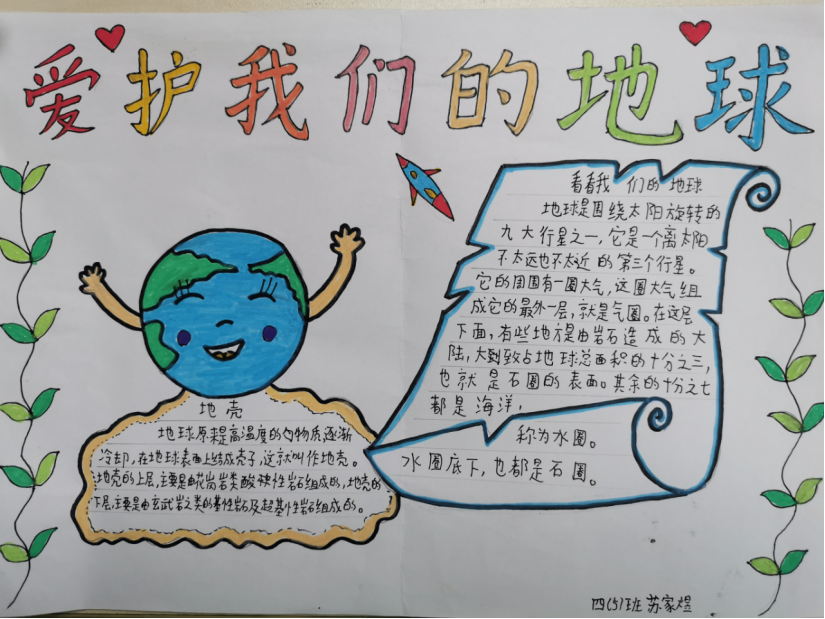 爱护我们的地球
看看我们的地球
地球是围绕太阳旋转的
九大行星之一,它是一个离太阳
不太远也不太近的第三个行星。
它的周围有一圈大气,这圈大气组
成它的最外一层,就是气圈。在这层
下面,有些地方是由岩石造成的大
陆,大到致占地球总面积的十分之三,
也就是石圈的表面。其余的十分之七
都是海洋,
称为水圈。
水圈底下,也都是石圈。
地壳
地球原来是高温度的物质逐渐
冷却,在地球表面上结成壳子,这就叫作地壳。
地壳的上层,主要是由花岗岩类酸性岩石组成的,地壳的
下层,主要是由玄武岩之类的基性岩石及超基性岩石组成的。
四(5)班 苏家煜